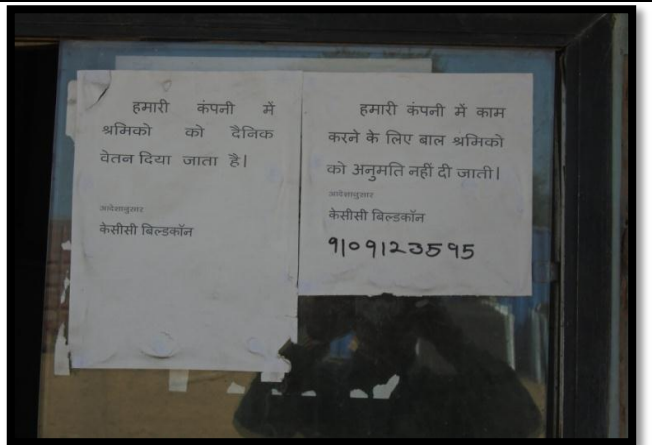 हमारी कंपनी में
श्रमिको को दैनिक
वेतन दिया जाता है|
आदेशानुसार
केसीसी बिल्डकॉन
हमारी कंपनी में काम
करने के लिए बाल श्रमिको
को अनुमति नहीं दी जाती|
आदेशानुसार
केसीसी बिल्डकॉन
9109123595